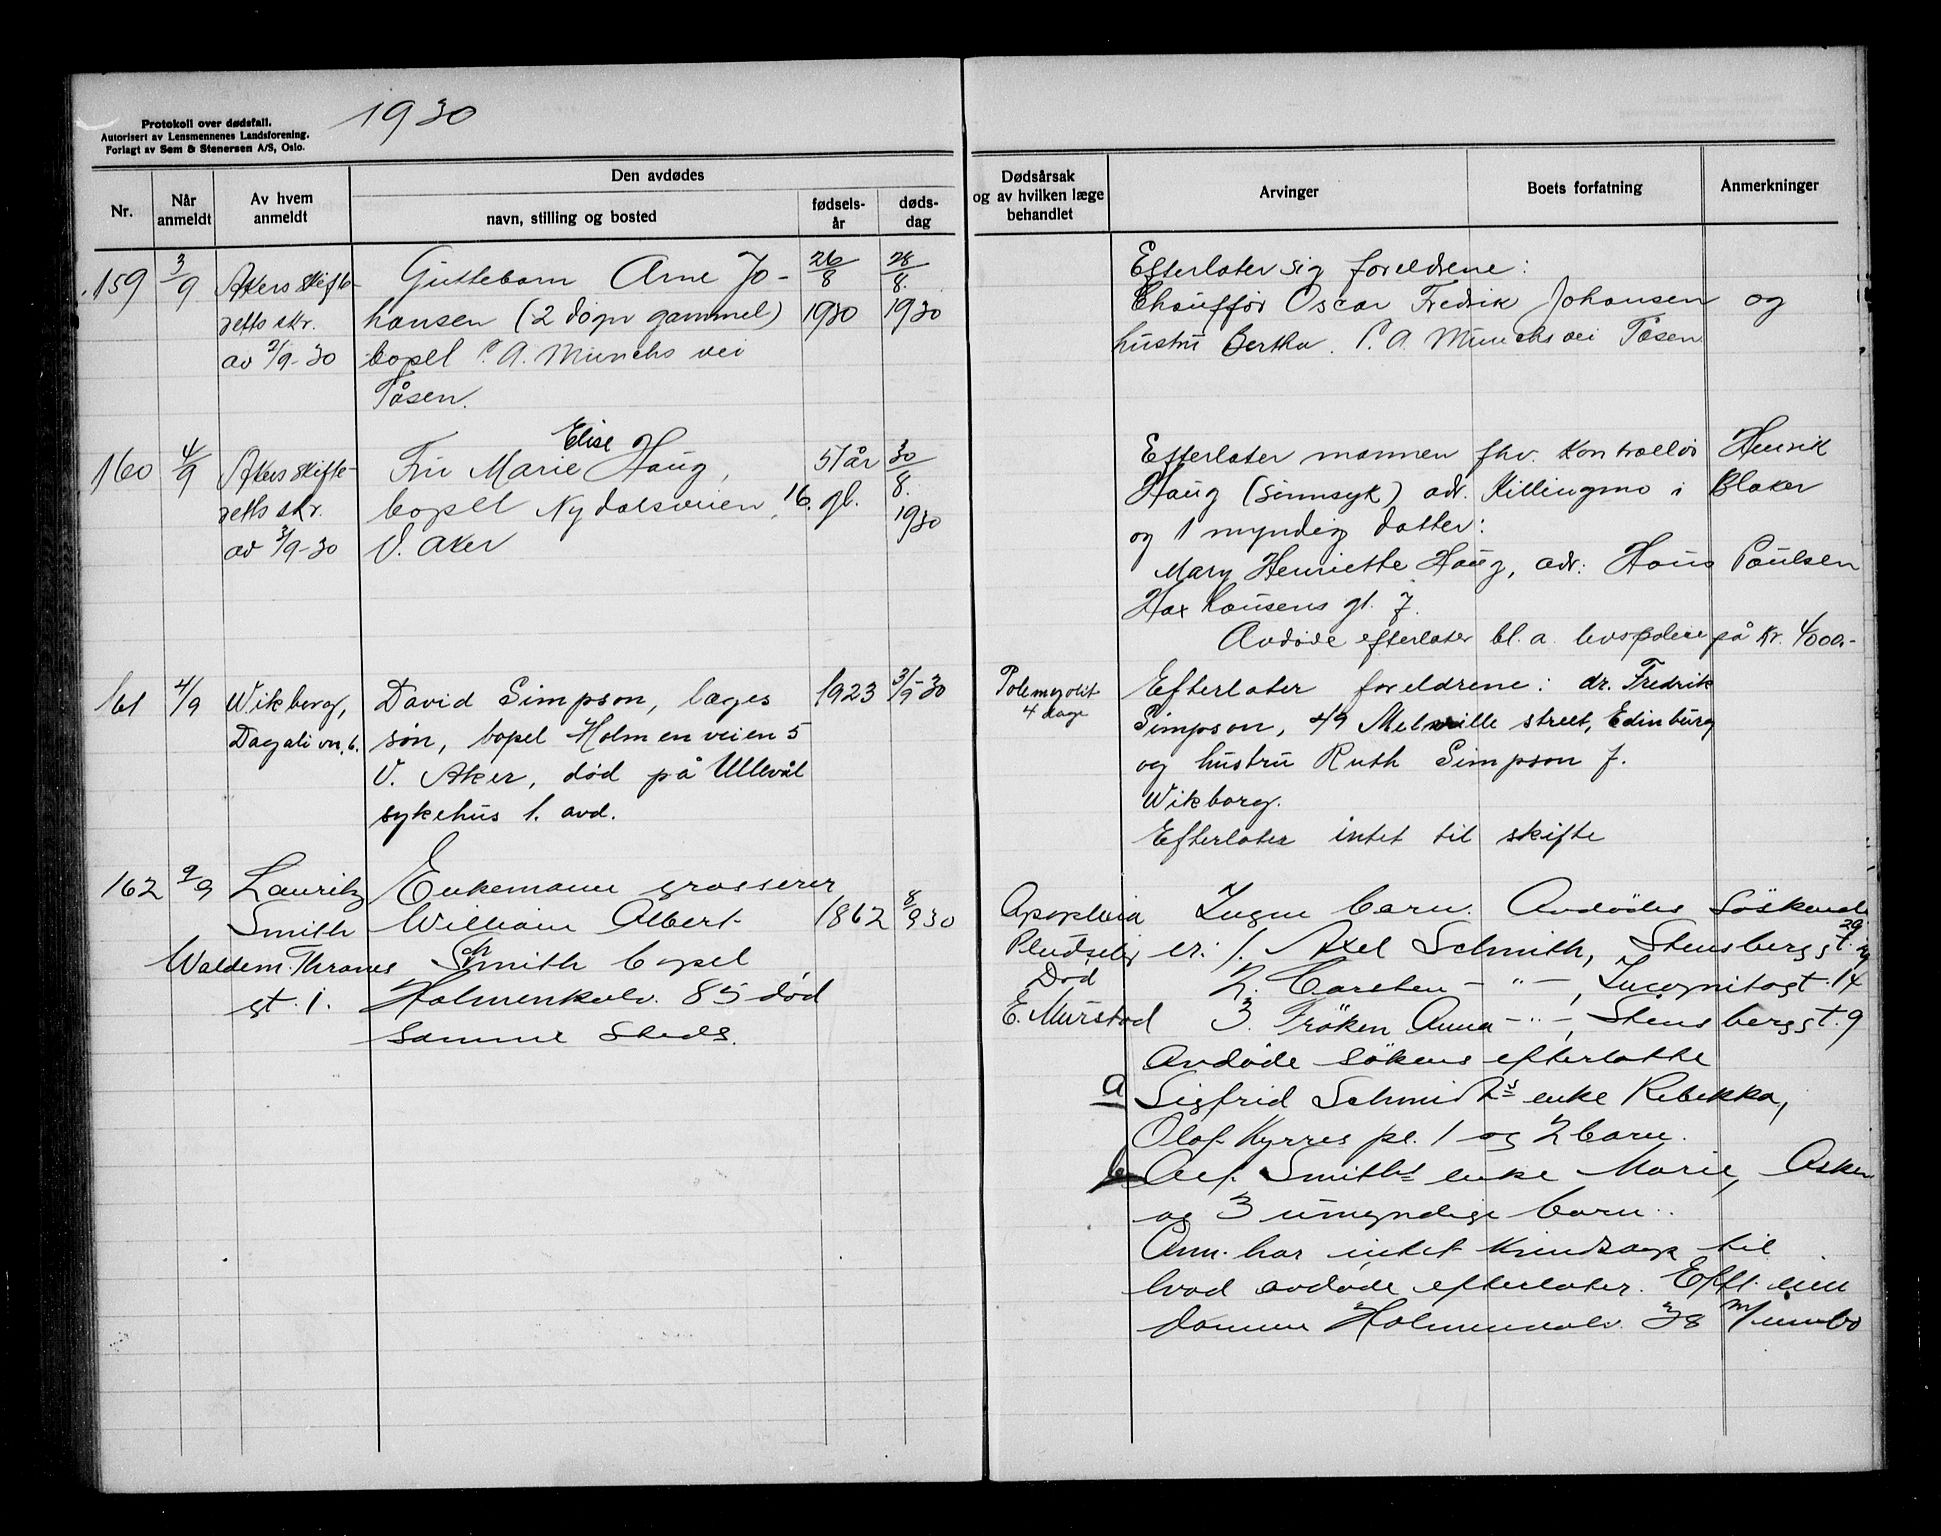 Protokoll over dødsfall.
Autorisert av Lensmennenes Landsforening.
Forlagt av Sem & Stenersen A/S, Oslo.
1930
Nr.
Når anmeldt
Av hvem anmeldt
Den avdødes
navn, stilling og bosted
fødsels-
år
døds-
dag
Dødsårsak
og av hvilken læge
behandlet
Arvinger
Boets forfatning
Anmerkninger
159
3/9
Akers skifte-
retts skr.
av 2/9-30
Guttebarn Arne Jo-
hansen (2 døgn gammel)
bopel P. A. Munchs vei
Tåsen.
26/8
1930
28/8.
1930
Efterlater sig foreldrene:
Chauffør Oscar Fredrik Johansen og
hustru Bertha. P. A. Munchs vei Tåsen
160
4/9
Akers skifte-
retts skr.
av 3/9-30
Elise
Fru Marie Haug,
bopel Nydalsveien 16.
V. Aker
57 år
gl.
30/8.
1930
Efterlater mannen fhv. kontrollør Henrik
Haug (sinnsyk) adr. Killingmo i Blaker
og 1 myndig datter:
Mary Henriette Haug, adr: Hans Paulsen
Haxthausens gt. 7.
Avdøde efterlater bl. a. livspolice på kr. 4000.-
161
4/9
Wikborg,
Dagalivn. 6.
David Simpson, læges
søn, bopel Holmenveien 5
V. Aker, død på Ullevål
sykehus 1. avd.
1923
3/9-30
Polemyolit
4 dage
Efterlater foreldrene: dr. Fredrik
Simpson, 49 Melville street, Edinburg
og hustru Ruth Simpson f.
Wikborg.
Efterlater intet til skifte
162
9/9
Lauritz
Smith
Waldem. Thranes
gt. 1.
Enkemann grosserer
William Albert
Smith bopel
Holmenkolv. 85 død
samme steds.
1862
8/9 30
Apoplexia
Pludselig
Død
E. Murstad
Ingen barn. Avdødes søskende
er: 1. Axel Schmith, Stensberggt. 29
2. Carsten - " -, Incognitogt. 14
3. Frøken Anna - " -, Stensberggt. 9
Avdøde søkens efterlatte
a Sigfrid Schmidts enke Rebekka,
Olaf Kyrres pl. 1 og 2 barn.
b Alf. Smiths enke Marie, Asker
og 3 umyndige barn.
Anm. har intet kundskap til
hvad avdøde efterlater. Eftl. eien
dommen Holmenkolv. 38 m/innbo